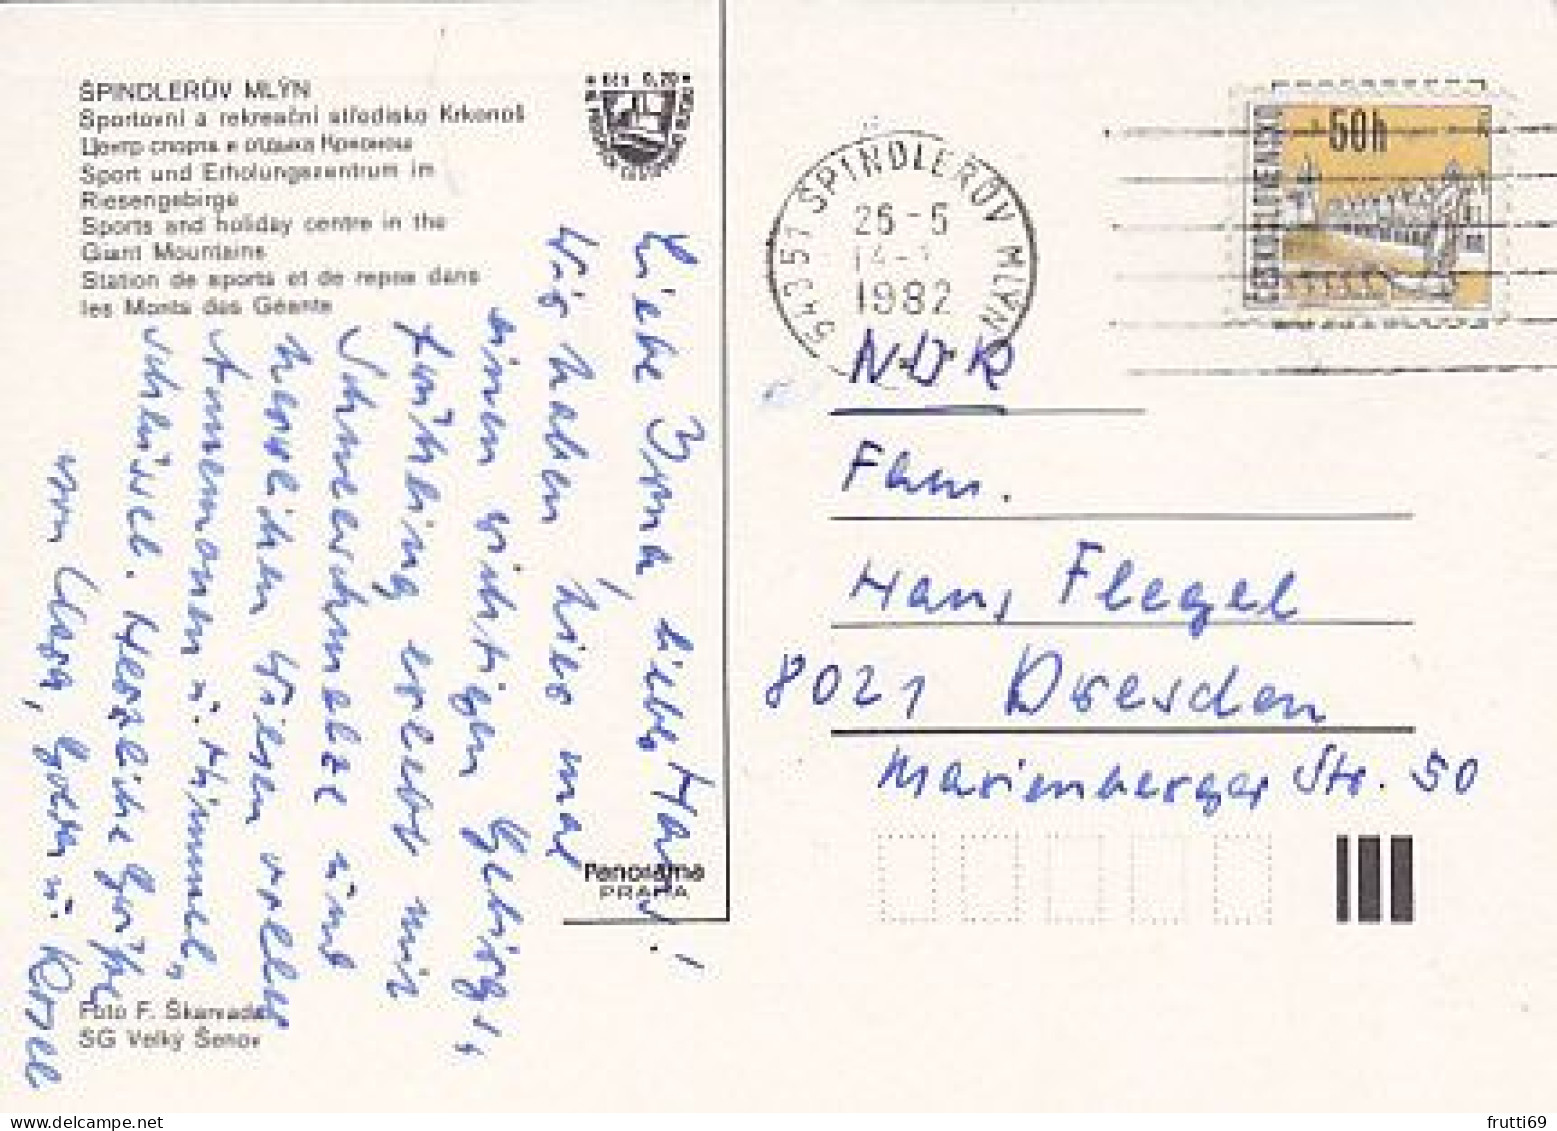 ŠPINDLERŮV MLÝN
Sportovní a rekreační středisko Krkonoš
Центр спорта и отдыха Крконош
Sport und Erholungszentrum im
Riesengebirge
Sports and holiday centre in the
Giant Mountains
Station de sports et de repos dans
les Monts des Géants
Kčs 0,20
Liebe Irma, lieber Hans!
Wir haben hier mal
einen richtigen Gebirgs-
frühling erlebt mit
Schneeschmelze und
Wiesen voller
Anemonen u. Himmel-
schlüssel. Herzliche Grüße
von
Panorama
PRAHA
Foto F. Škarvada
SG Velký Šenov
543 51 ŠPINDLERŮV MLÝN
26.-5
1982
ČESKOSLOVENSKO
50h
NDR
Fam.
Hans Flegel
8021 Dresden
Marienberger Str. 50
frutti69